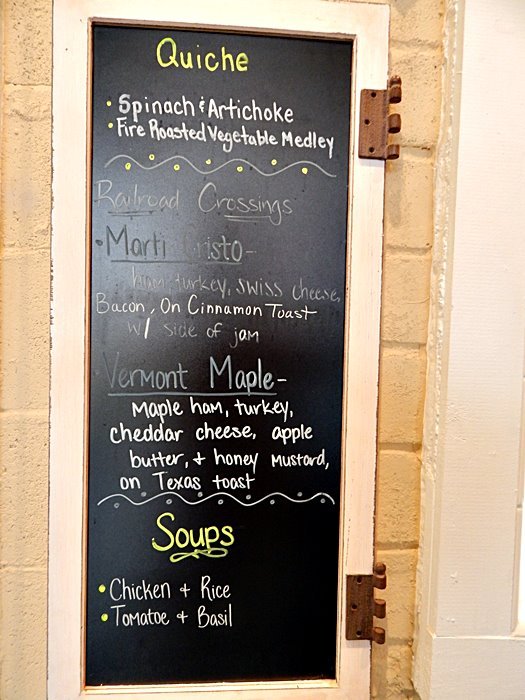 Quiche
• Spinach & Artichoke
• Fire Roasted Vegetable Medley
Railroad Crossings
• Marti Cristo-
ham, turkey, swiss cheese,
Bacon, On Cinnamon Toast
w/ side of jam
• Vermont Maple-
Maple ham, turkey,
cheddar cheese, apple
butter, + honey mustard,
on Texas toast
Soups
• Chicken + Rice
• Tomatoe + Basil